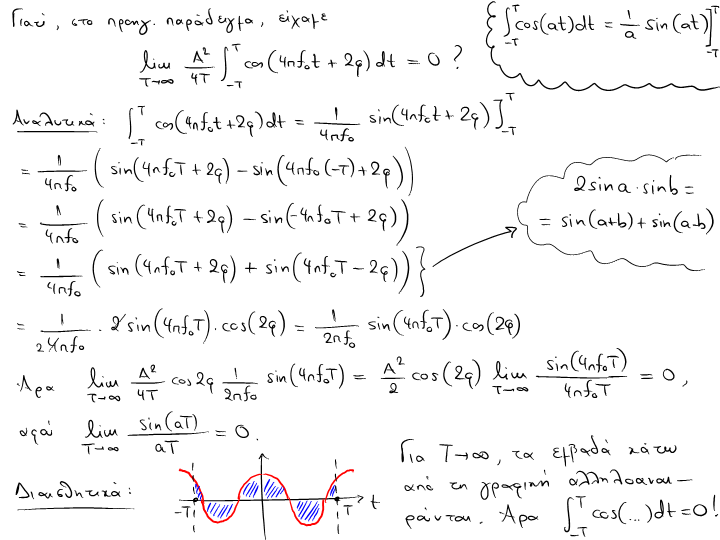 Γιατί, στο προηγ. παράδειγμα, είχαμε
lim_{T→∞} A²/4T ∫_{-T}^{T} cos(4πf₀t + 2φ) dt = 0 ?
∫_{-T}^{T} cos(at)dt = 1/a sin(at)]_{-T}^{T}
Αναλυτικά: ∫_{-T}^{T} cos(4πf₀t+2φ)dt = 1/4πf₀ sin(4πf₀t+2φ)]_{-T}^{T}
= 1/4πf₀ (sin(4πf₀T + 2φ) - sin(4πf₀(-T)+2φ))
= 1/4πf₀ (sin(4πf₀T + 2φ) - sin(-4πf₀T + 2φ))
= 1/4πf₀ (sin(4πf₀T + 2φ) + sin(4πf₀T - 2φ))}
2sina·sinb =
= sin(a+b) + sin(a-b)
= 1/2 4πf₀ · 2 sin(4πf₀T)·cos(2φ) = 1/2πf₀ sin(4πf₀T)·cos(2φ)
Άρα lim_{T→∞} A²/4T cos2φ 1/2πf₀ sin(4πf₀T) = A²/2 cos(2φ) lim_{T→∞} sin(4πf₀T)/4πf₀T = 0,
αφού lim_{T→∞} sin(aT)/aT = 0.
Διαισθητικά:
-T T t
Για T→∞, τα εμβαδά κάτω
από τη γραφική αλληλοαναι-
ρούνται. Άρα ∫_{-T}^{T} cos(...)dt=0!